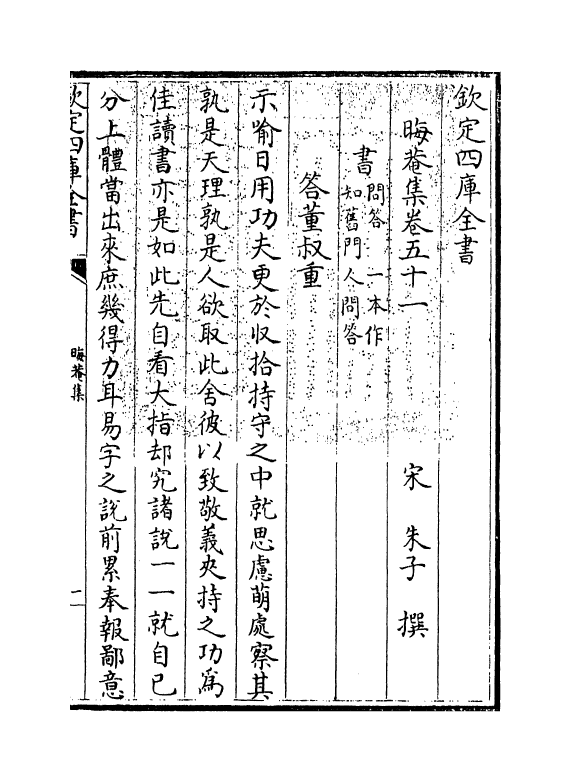 欽定四庫全書
晦菴集卷五十一
宋 朱子 撰
書 問答 一本作
知舊門人問答
答董叔重
示喻日用功夫更於收拾持守之中就思慮萌處察其
孰是天理孰是人欲取此舍彼以致敬義夾持之功為
佳讀書亦是如此先自看大指却究諸說一一就自己
分上體當出來庶幾得力耳易字之說前累奉報鄙意
欽定四庫全書
晦菴集